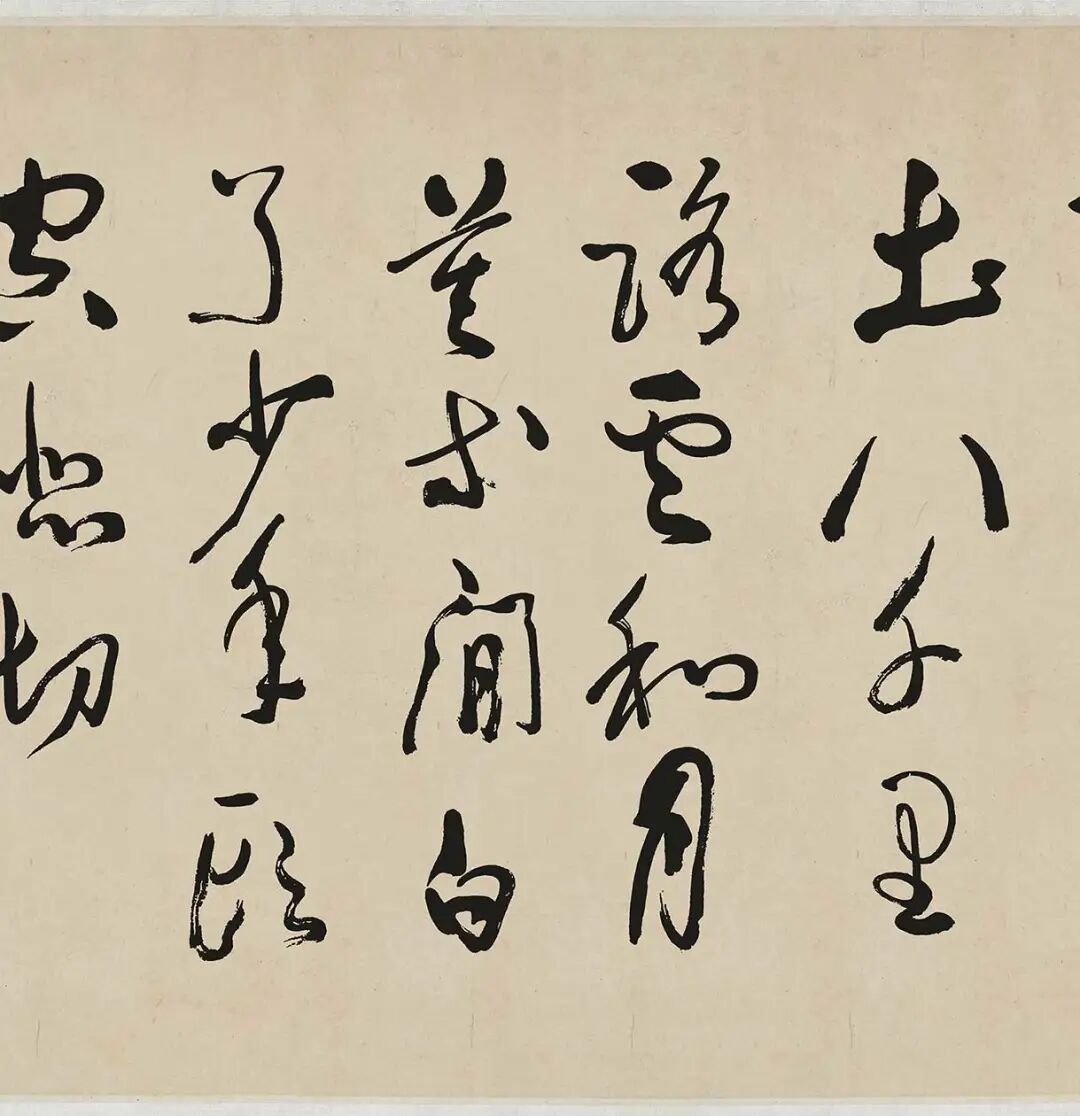 土八千里
路雲和月
莫等閒白
了少年頭
空悲切